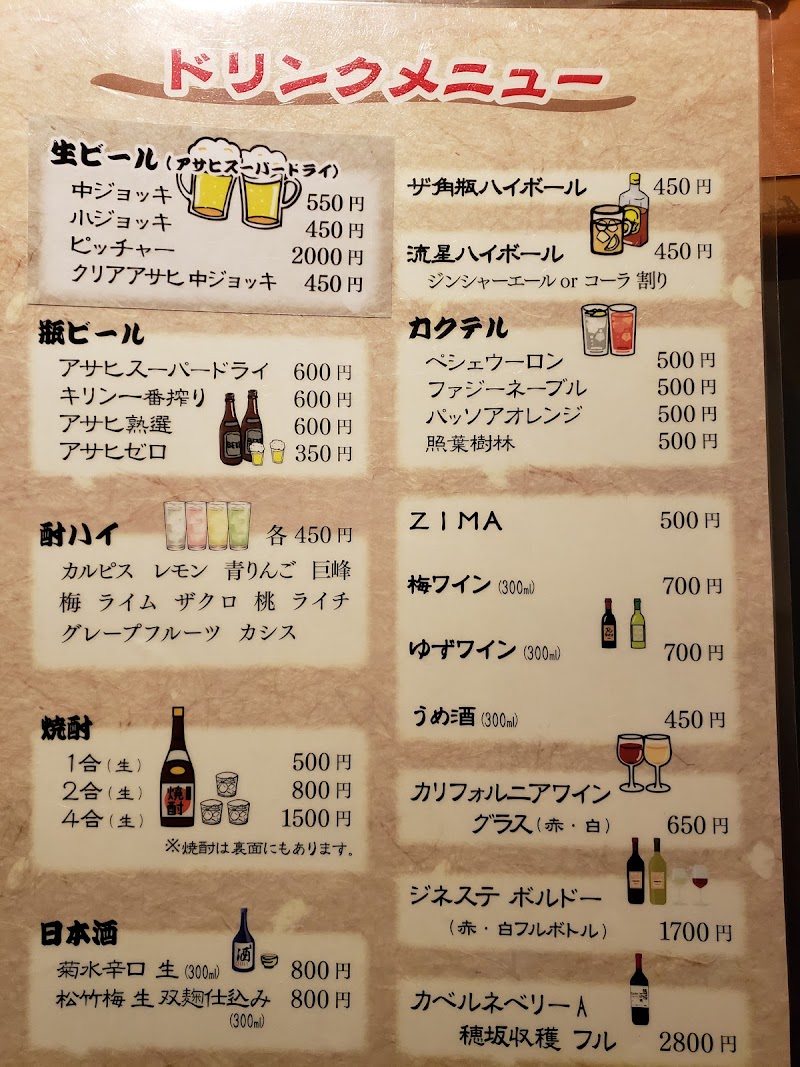 ドリンクメニュー
生ビール(アサヒスーパードライ)
中ジョッキ 550円
小ジョッキ 450円
ピッチャー 2000円
クリアアサヒ 中ジョッキ 450円
瓶ビール
アサヒスーパードライ 600円
キリン一番搾り 600円
アサヒ熟選 600円
アサヒゼロ 350円
酎ハイ 各 450円
カルピス レモン 青りんご 巨峰
梅 ライム ザクロ 桃 ライチ
グレープフルーツ カシス
焼酎
1合(生) 500円
2合(生) 800円
4合(生) 1500円
焼酎
※焼酎は裏面にもあります。
日本酒
酒
菊水辛口 生(300ml) 800円
松竹梅 生 双麹仕込み 800円
(300ml)
ザ角瓶ハイボール 450円
流星ハイボール 450円
ジンシャーエール or コーラ 割り
カクテル
ペシェウーロン 500円
ファジーネーブル 500円
パッソアオレンジ 500円
照葉樹林 500円
ZIMA 500円
梅ワイン(300ml) 700円
ゆずワイン(300ml) 700円
うめ酒(300ml) 450円
カリフォルニアワイン
グラス(赤・白) 650円
ジネステ ボルドー
(赤・白フルボトル) 1700円
カベルネベリーA
穂坂収穫 フル 2800円